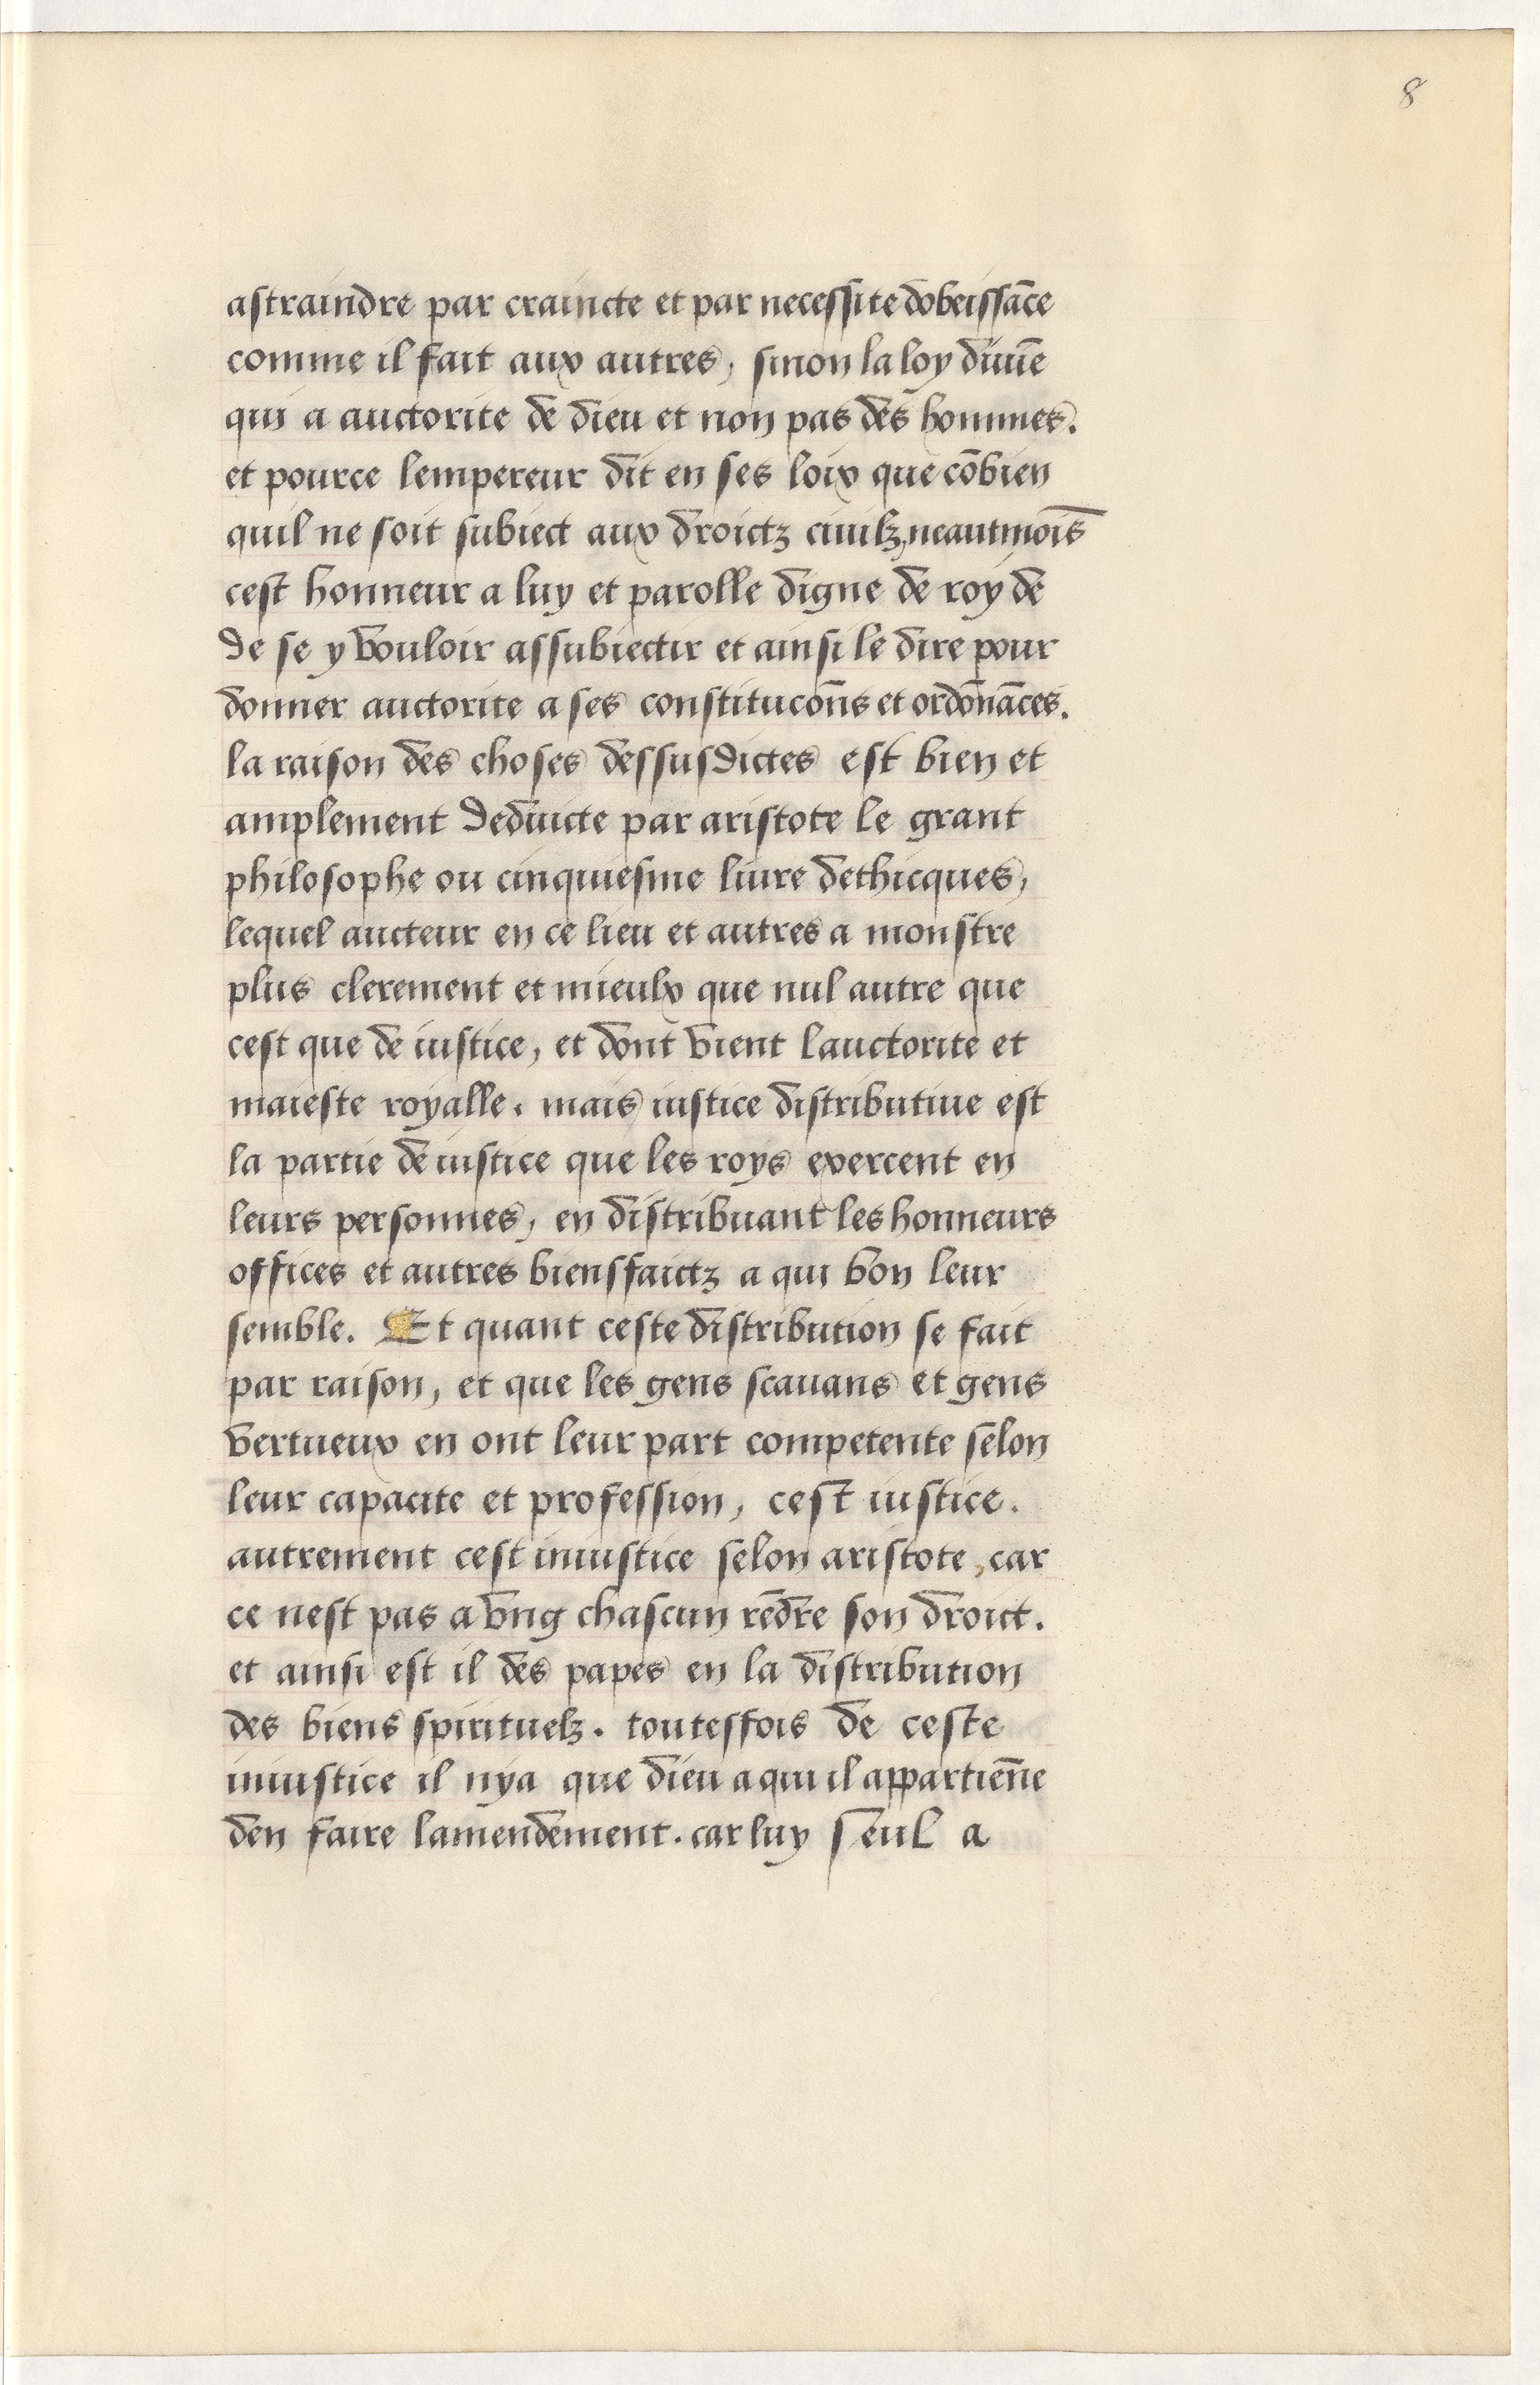 8
astraindre par craincte et par necessite dobeissãce
comme il fait aux autres, sinon la loy diuiẽ
qui a auctorite de dieu et non pas des hommes.
et pource lempereur dit en ses loix que cõbien
quil ne soit subiect aux droictz ciuilz, neautmoĩs
cest honneur a luy et parolle digne de roy de
de se y vouloir assubiectir et ainsi le dire pour
donner auctorite a ses constitucoñs et ordõnãces.
la raison des choses dessusdictes est bien et
amplement deduicte par aristote le grant
philosophe ou cinquiesme liure dethicques,
lequel aucteur en ce lieu et autres a monstre
plus clerement et mieulx que nul autre que
cest que de iustice, et dont vient lauctorite et
maieste royalle. mais iustice distributiue est
la partie de iustice que les roys exercent en
leurs personnes, en distribuant les honneurs
offices et autres biensfaictz a qui bon leur
semble. Et quant ceste distribution se fait
par raison, et que les gens scauans et gens
vertueux en ont leur part competente selon
leur capacite et profession, cest iustice.
autrement cest iniustice selon aristote, car
ce nest pas a vng chascun rẽdre son droict.
et ainsi est il des papes en la distribution
des biens spirituelz. toutesfois de ceste
iniustice il nya que dieu a qui il appartiẽne
den faire lamendement. car luy seul a